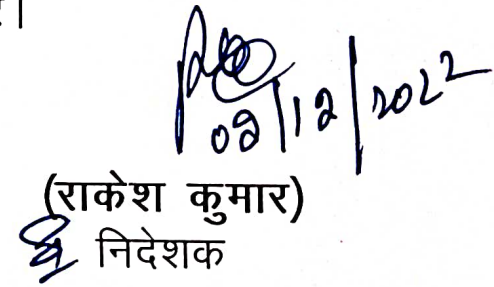 ।
02/12/2022
(राकेश कुमार)
निदेशक